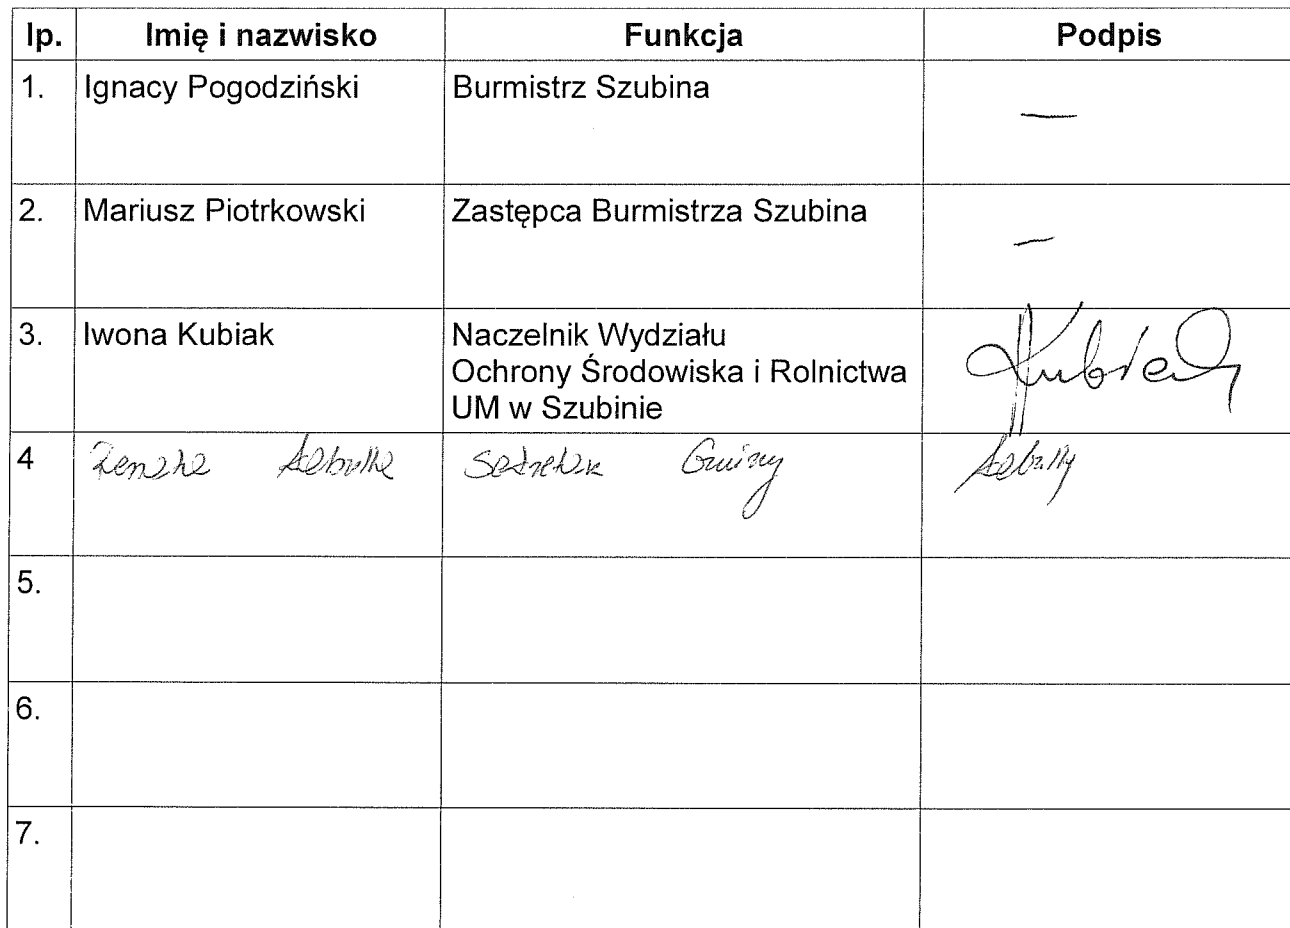 lp. Imię i nazwisko Funkcja Podpis
1. Ignacy Pogodziński Burmistrz Szubina —
2. Mariusz Piotrkowski Zastępca Burmistrza Szubina —
3. Iwona Kubiak Naczelnik Wydziału
Ochrony Środowiska i Rolnictwa
UM w Szubinie
Kubiak
4 Sekretarz Gminy
5.
6.
7.